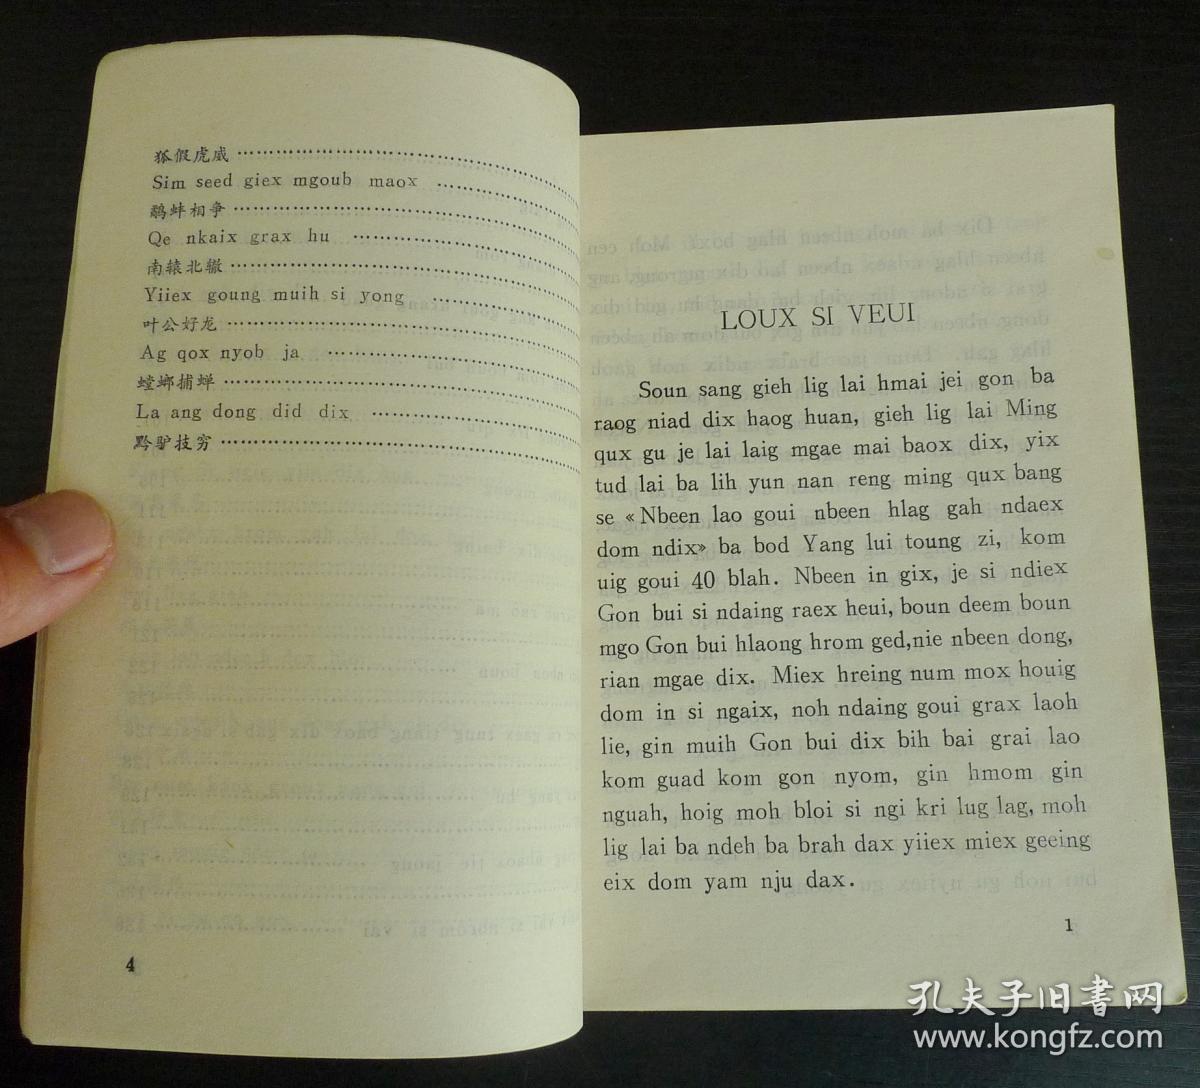 狐假虎威
Sim seed giex mgoub maox
鹬蚌相争
Qe nkaix grax hu
南辕北辙
Yiiex goung muih si yong
叶公好龙
Ag qox nyob ja
螳螂捕蝉
La ang dong did dix
黔驴技穷
4
LOUX SI VEUI
Soun sang gieh lig lai hmai jei gon ba
raog niad dix haog huan, gieh lig lai Ming
qux gu je lai laig mgae mai baox dix, yix
tud lai ba lih yun nan reng ming qux bang
se «Nbeen lao goui nbeen hlag gah ndaex
dom ndix» ba bod Yang lui toung zi, kom
uig goui 40 blah. Nbeen in gix, je si ndiex
Gon bui si ndaing raex heui, boun deem boun
mgo Gon bui hlaong hrom ged,nie nbeen dong,
rian mgae dix. Miex hreing num mox houig
dom in si ngaix, noh ndaing goui grax laoh
lie, gin muih Gon bui dix bih bai grai lao
kom guad kom gon nyom, gin hmom gin
nguah, hoig moh bloi si ngi kri lug lag, moh
lig lai ba ndeh ba brah dax yiiex miex geeing
eix dom yam nju dax.
1
孔夫子旧書网
www.kongfz.com